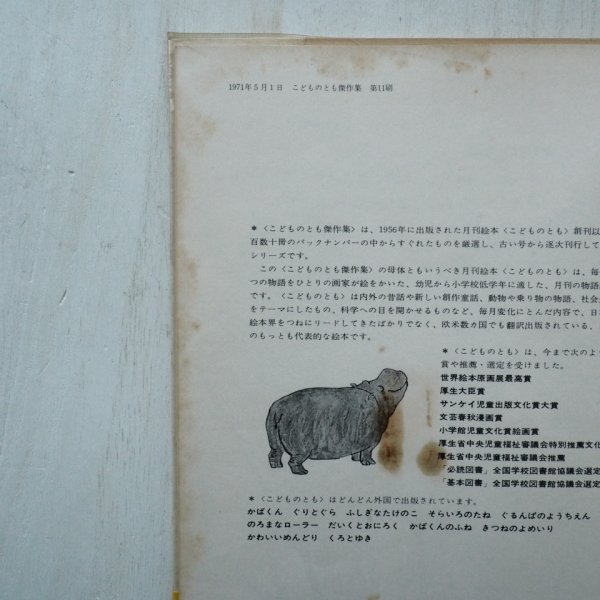 1971年5月1日　こどものとも傑作集　第11刷
＊〈こどものとも傑作集〉は、1956年に出版された月刊絵本〈こどものとも〉創刊以
百数十冊のバックナンバーの中からすぐれたものを厳選し、古い号から逐次刊行して
シリーズです。
この〈こどものとも傑作集〉の母体ともいうべき月刊絵本〈こどものとも〉は、毎
つの物語をひとりの画家が絵をかいた、幼児から小学校低学年に適した、月刊の物語
です。〈こどものとも〉は内外の昔話や新しい創作童話、動物や乗り物の物語、社会
をテーマにしたもの、科学への目を開かせるものなど、毎月変化にとんだ内容で、日
絵本界をつねにリードしてきたばかりでなく、欧米数カ国でも翻訳出版されている、
のもっとも代表的な絵本です。
＊〈こどものとも〉は、今まで次のよう
賞や推薦・選定を受けました。
世界絵本原画展最高賞
厚生大臣賞
サンケイ児童出版文化賞大賞
文芸春秋漫画賞
小学館児童文化賞絵画賞
厚生省中央児童福祉審議会特別推薦文化
厚生省中央児童福祉審議会推薦
「必読図書」全国学校図書館協議会選定
「基本図書」全国学校図書館協議会選定
＊〈こどものとも〉はどんどん外国で出版されています。
かばくん　ぐりとぐら　ふしぎなたけのこ　そらいろのたね　ぐるんぱのようちえん
のろまなローラー　だいくとおにろく　かばくんのふね　きつねのよめいり
かわいいめんどり　くろとゆき